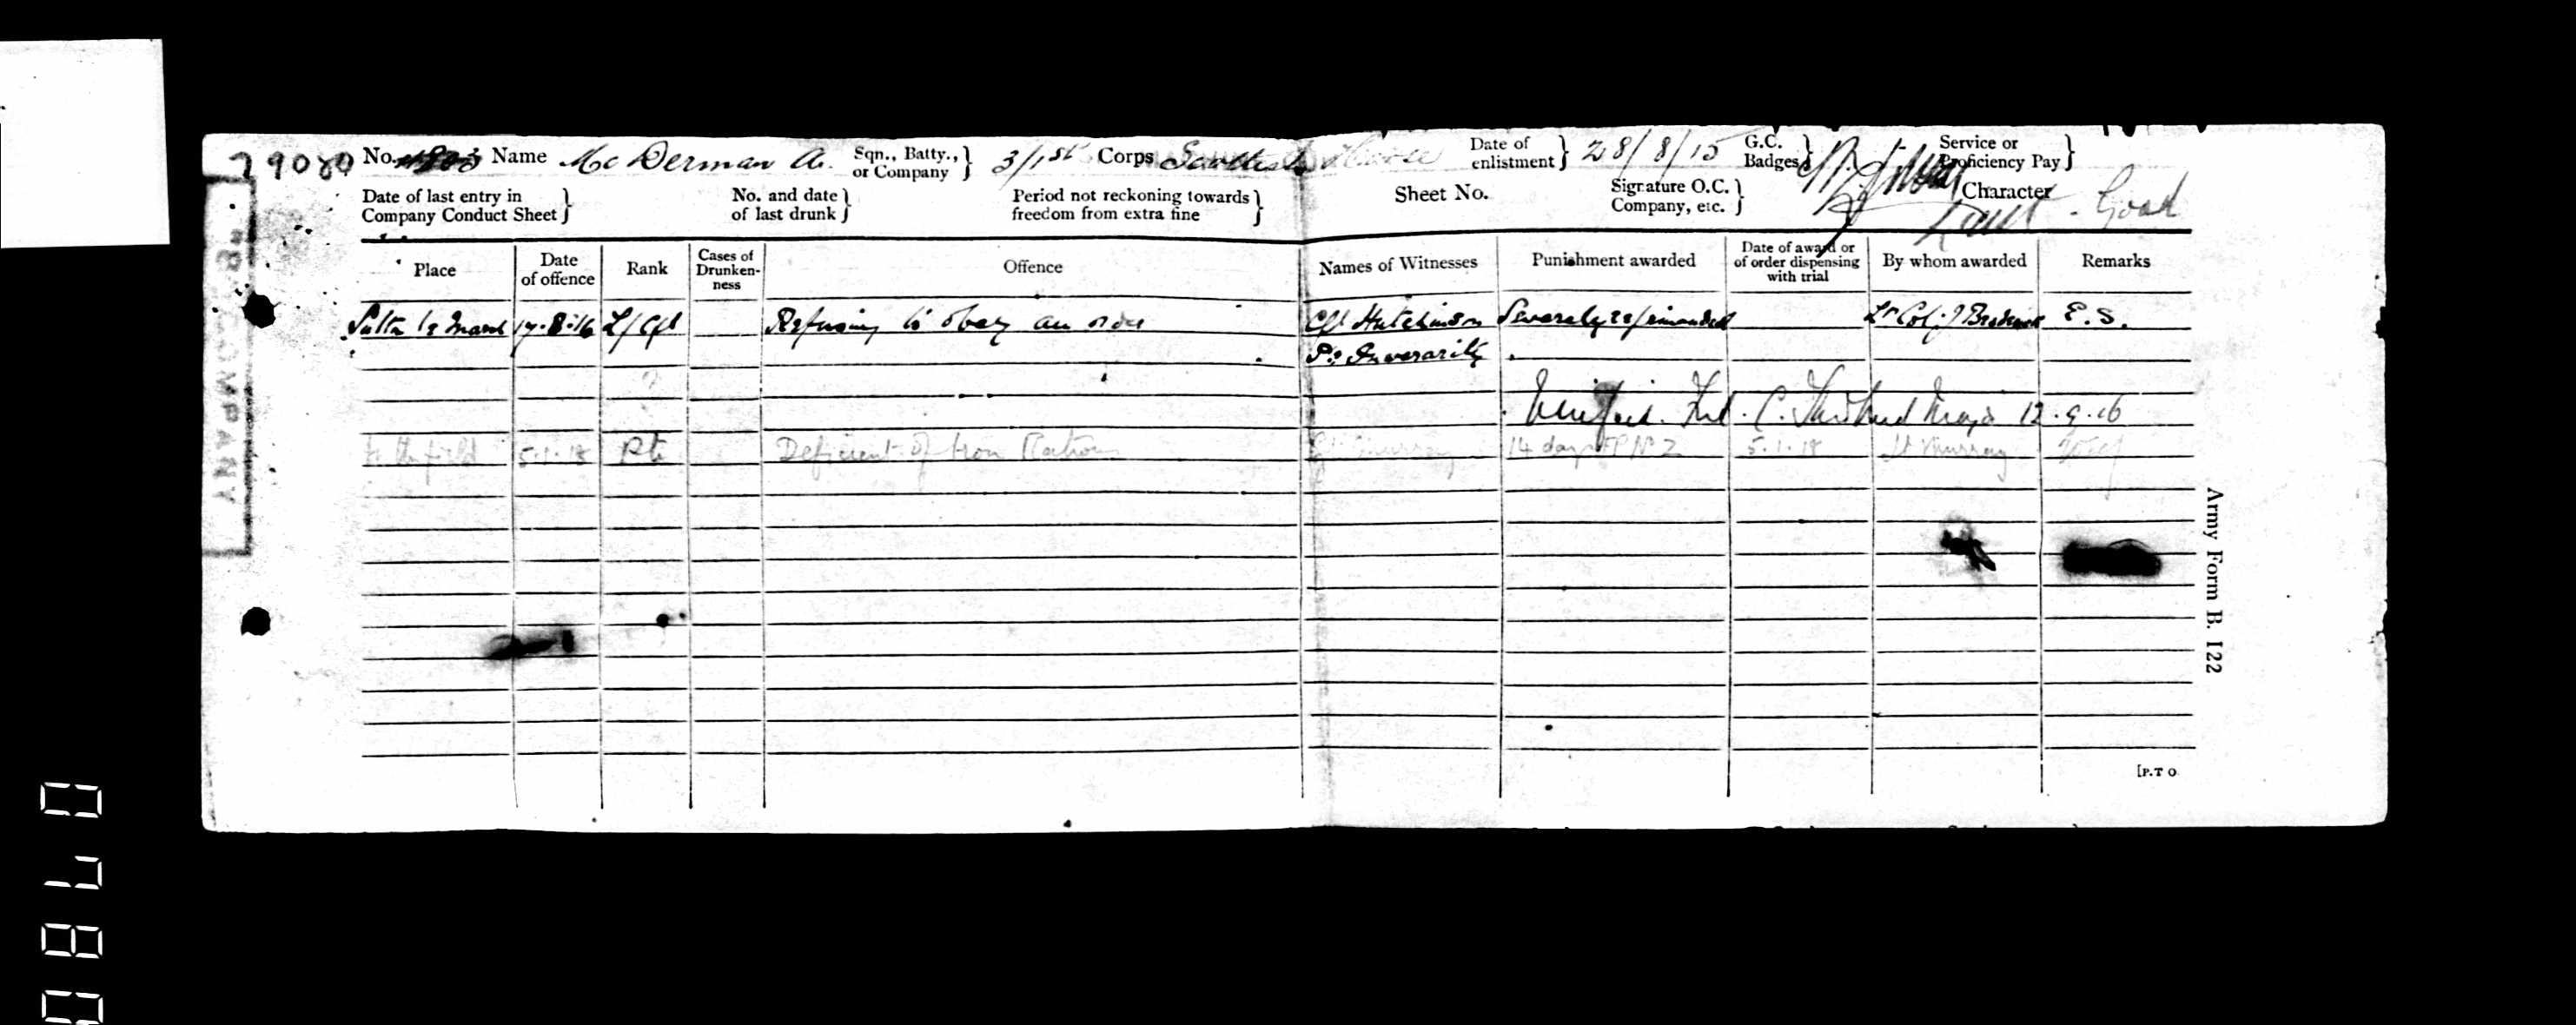 79080 No. Name McDerman A. Sqn., Batty., or Company } 3/1st Corps Scottish Horse Date of enlistment } 28/8/15 G.C. Badges } Service or Proficiency Pay }
Date of last entry in Company Conduct Sheet } No. and date of last drunk } Period not reckoning towards freedom from extra fine } Sheet No. Signature O.C. Company, etc. } Lieut Character Good
Place Date of offence Rank Cases of Drunken-ness Offence Names of Witnesses Punishment awarded Date of award or of order dispensing with trial By whom awarded Remarks
17.8.16 L/Cpl Refusing to obey an order Cpl Hutchinson Severely reprimanded Lt Col. J Broderick E.S.
Pte Inverarity
Verified. Major 12.9.16
5.1.18 Pte Deficient of Iron Rations Murray 14 days FP No 2 5.1.18 Lt Murray
Army Form B. 122
[P.T O
COMPANY
0
7
8